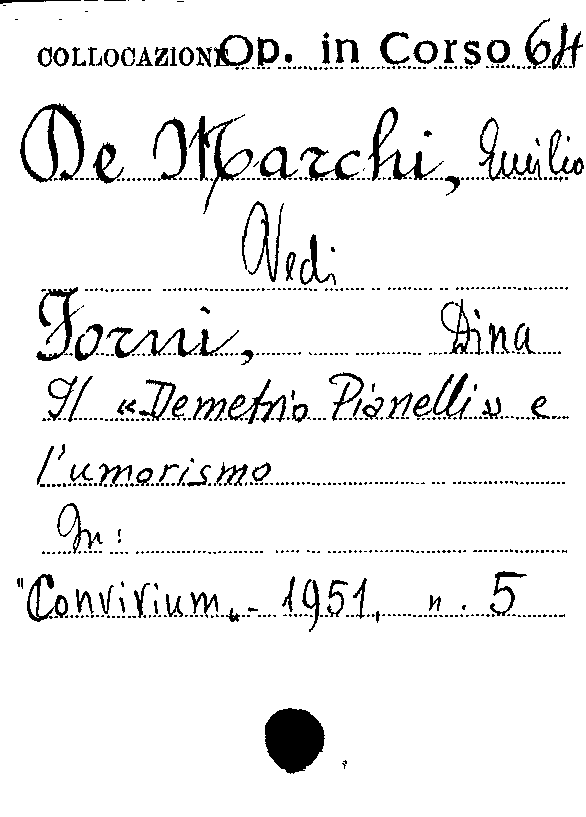 COLLOCAZIONE Op. in Corso 64
De Marchi, Emilio
Vedi
Forni, Dina
Il «Demetrio Pianelli» e
l'umorismo
In:
"Convivium„ - 1951, n. 5